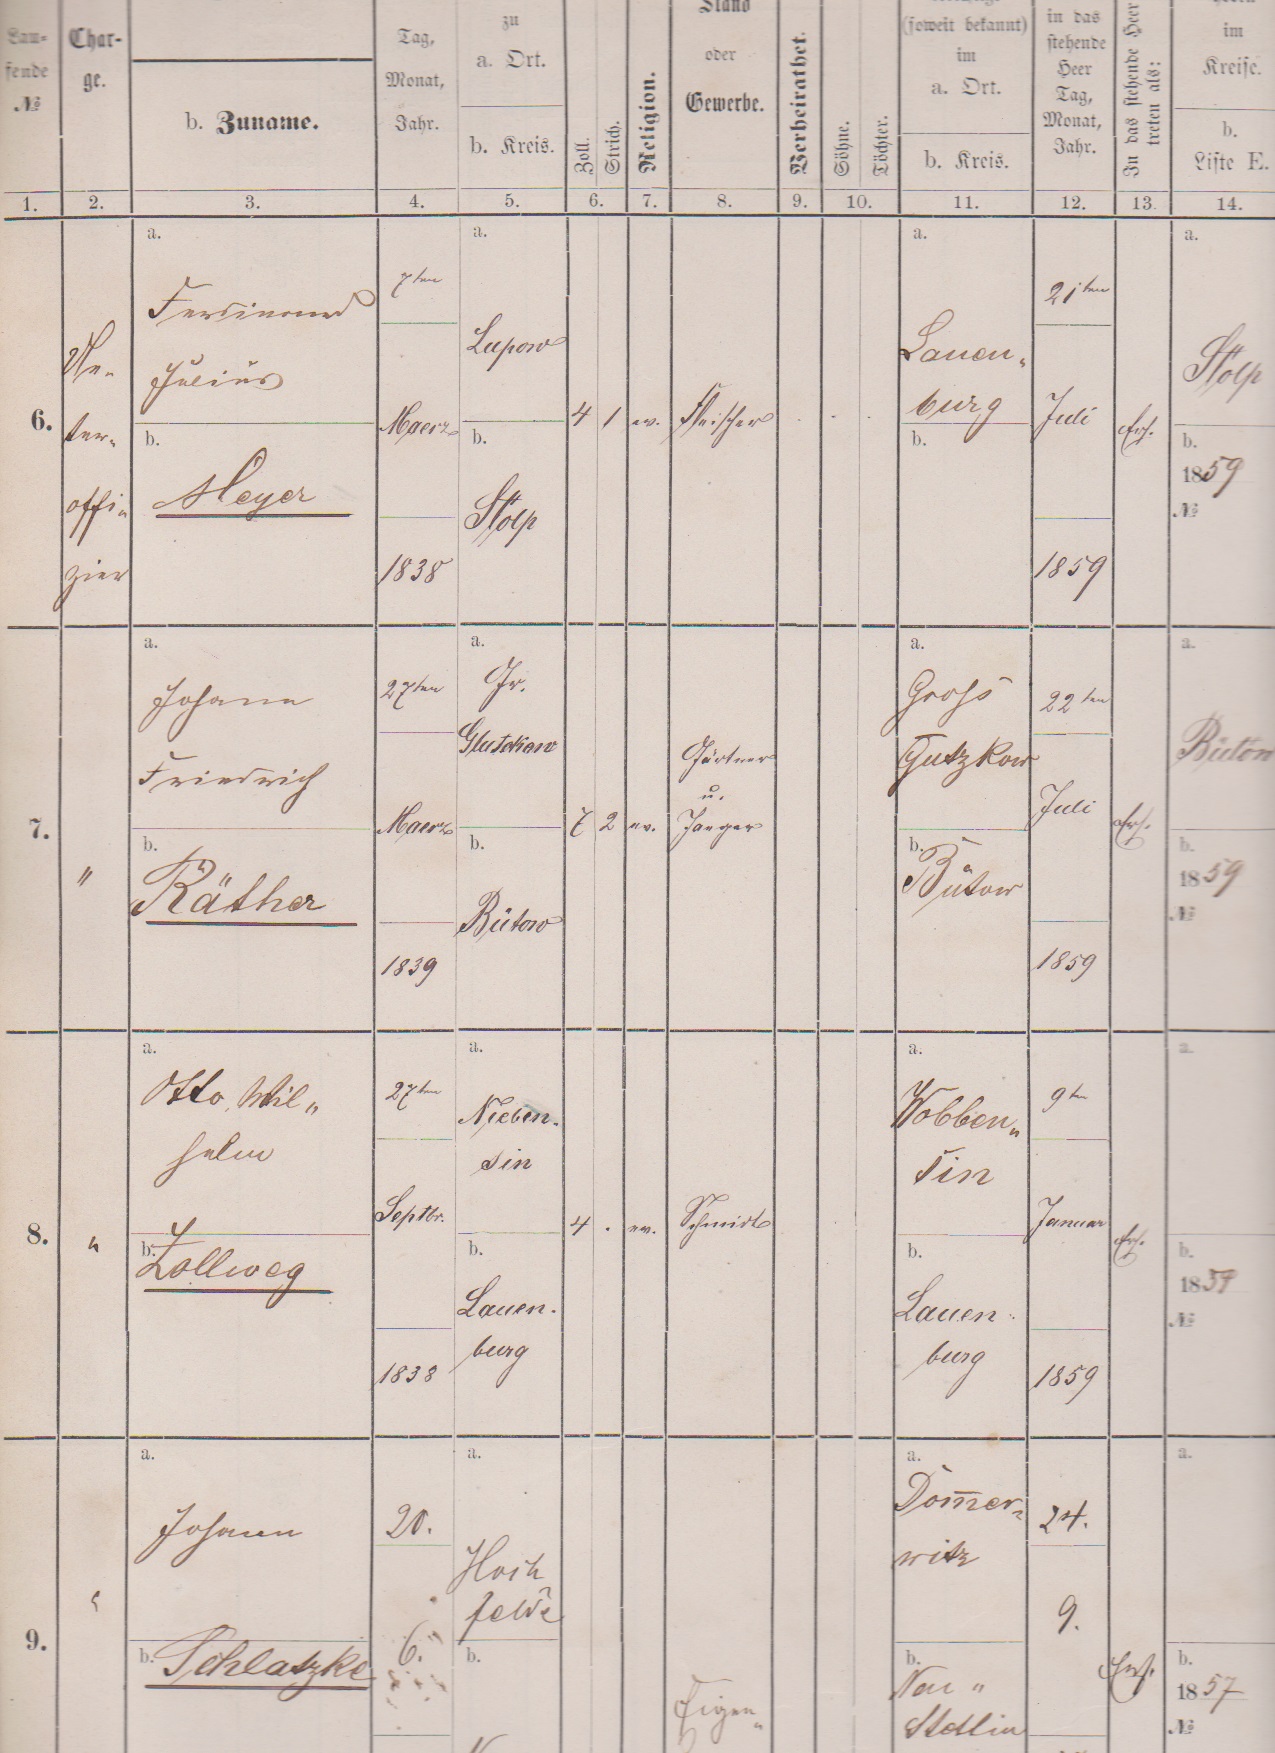 Lau-
fende
№
Char-
ge.
b. Zuname.
Tag,
Monat,
Jahr.
zu
a. Ort.
b. Kreis.
Zoll.
Strich.
Religion.
Stand
oder
Gewerbe.
Verheirathet.
Söhne.
Töchter.
(soweit bekannt)
im
a. Ort.
b. Kreis.
in das
stehende
Heer
Tag,
Monat,
Jahr.
In das stehende Heer
treten als:
im
Kreise.
b.
Liste E.
1. 2. 3. 4. 5. 6. 7. 8. 9. 10. 11. 12. 13. 14.
6.
Un-
ter-
offi-
zier
a.
Ferdinand
Julius
b.
Meyer
7ten
Maerz
1838
a.
Lupow
b.
Stolp
4 1 ev. Fleischer
a.
Lauen-
burg
b.
21ten
Juli
1859
Ers.
a.
Stolp
b.
1859
№
7.
"
a.
Johann
Friedrich
b.
Räther
27ten
Maerz
1839
a.
Gr.
b.
Bütow
7 2 ev.
Gärtner
u.
Jaeger
a.
Gross
Gutzkow
b.
Bütow
22ten
Juli
1859
Ers.
a.
Bütow
b.
1859
№
8.
"
a.
Otto Wil-
helm
b.
Zollweg
27ten
Septbr.
1838
a.
sin
b.
Lauen-
burg
4 . ev. Schmidt
a.
Wobben-
sin
b.
Lauen-
burg
9ten
Januar
1859
Ers.
a.
b.
1859
№
9.
"
a.
Johann
b. Schlatzke
20.
6.
a.
Hoch
felde
b.
Eigen-
a.
witz
b.
Neu-
Stettin
24.
9.
Ers.
a.
b.
1857
№